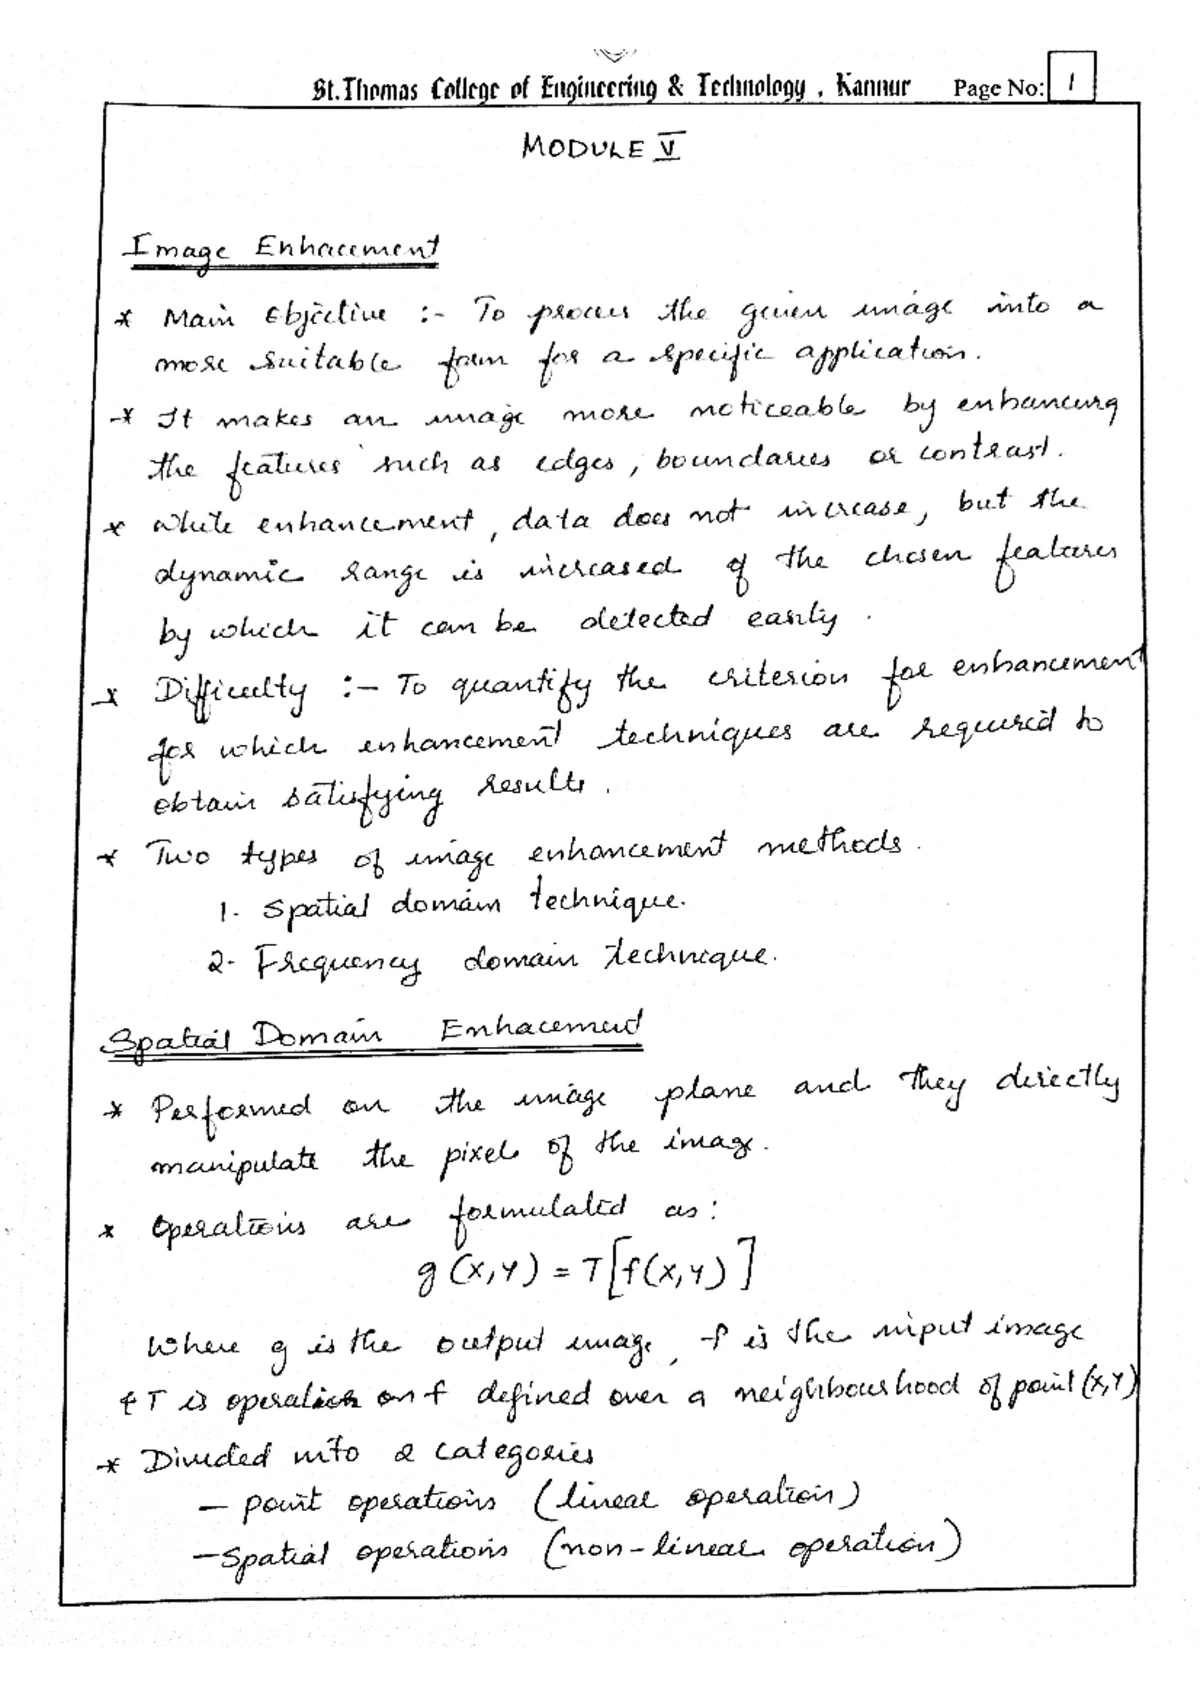 St.Thomas College of Engineering & Technology , Kannur Page No: 1
MODULE V
Image Enhacement
* Main Objective :- To process the given image into a
more suitable form for a specific application.
* It makes an image more noticeable by enhancing
the features such as edges, boundaries or contrast.
* While enhancement, data does not increase, but the
dynamic range is increased of the chosen features
by which it can be detected easily.
* Difficulty :- To quantify the criterion for enhancement
for which enhancement techniques are required to
obtain satisfying results.
* Two types of image enhancement methods.
1. Spatial domain technique.
2. Frequency domain technique.
Spatial Domain Enhacement
* Performed on the image plane and they directly
manipulate the pixel of the image.
* Operations are formulated as:
g(x,y) = T[f(x,y)]
Where g is the output image, f is the input image
& T is operation on f defined over a neighbourhood of point (x,y)
* Divided into 2 categories
- Point operations (linear operation)
- Spatial operations (non-linear operation)